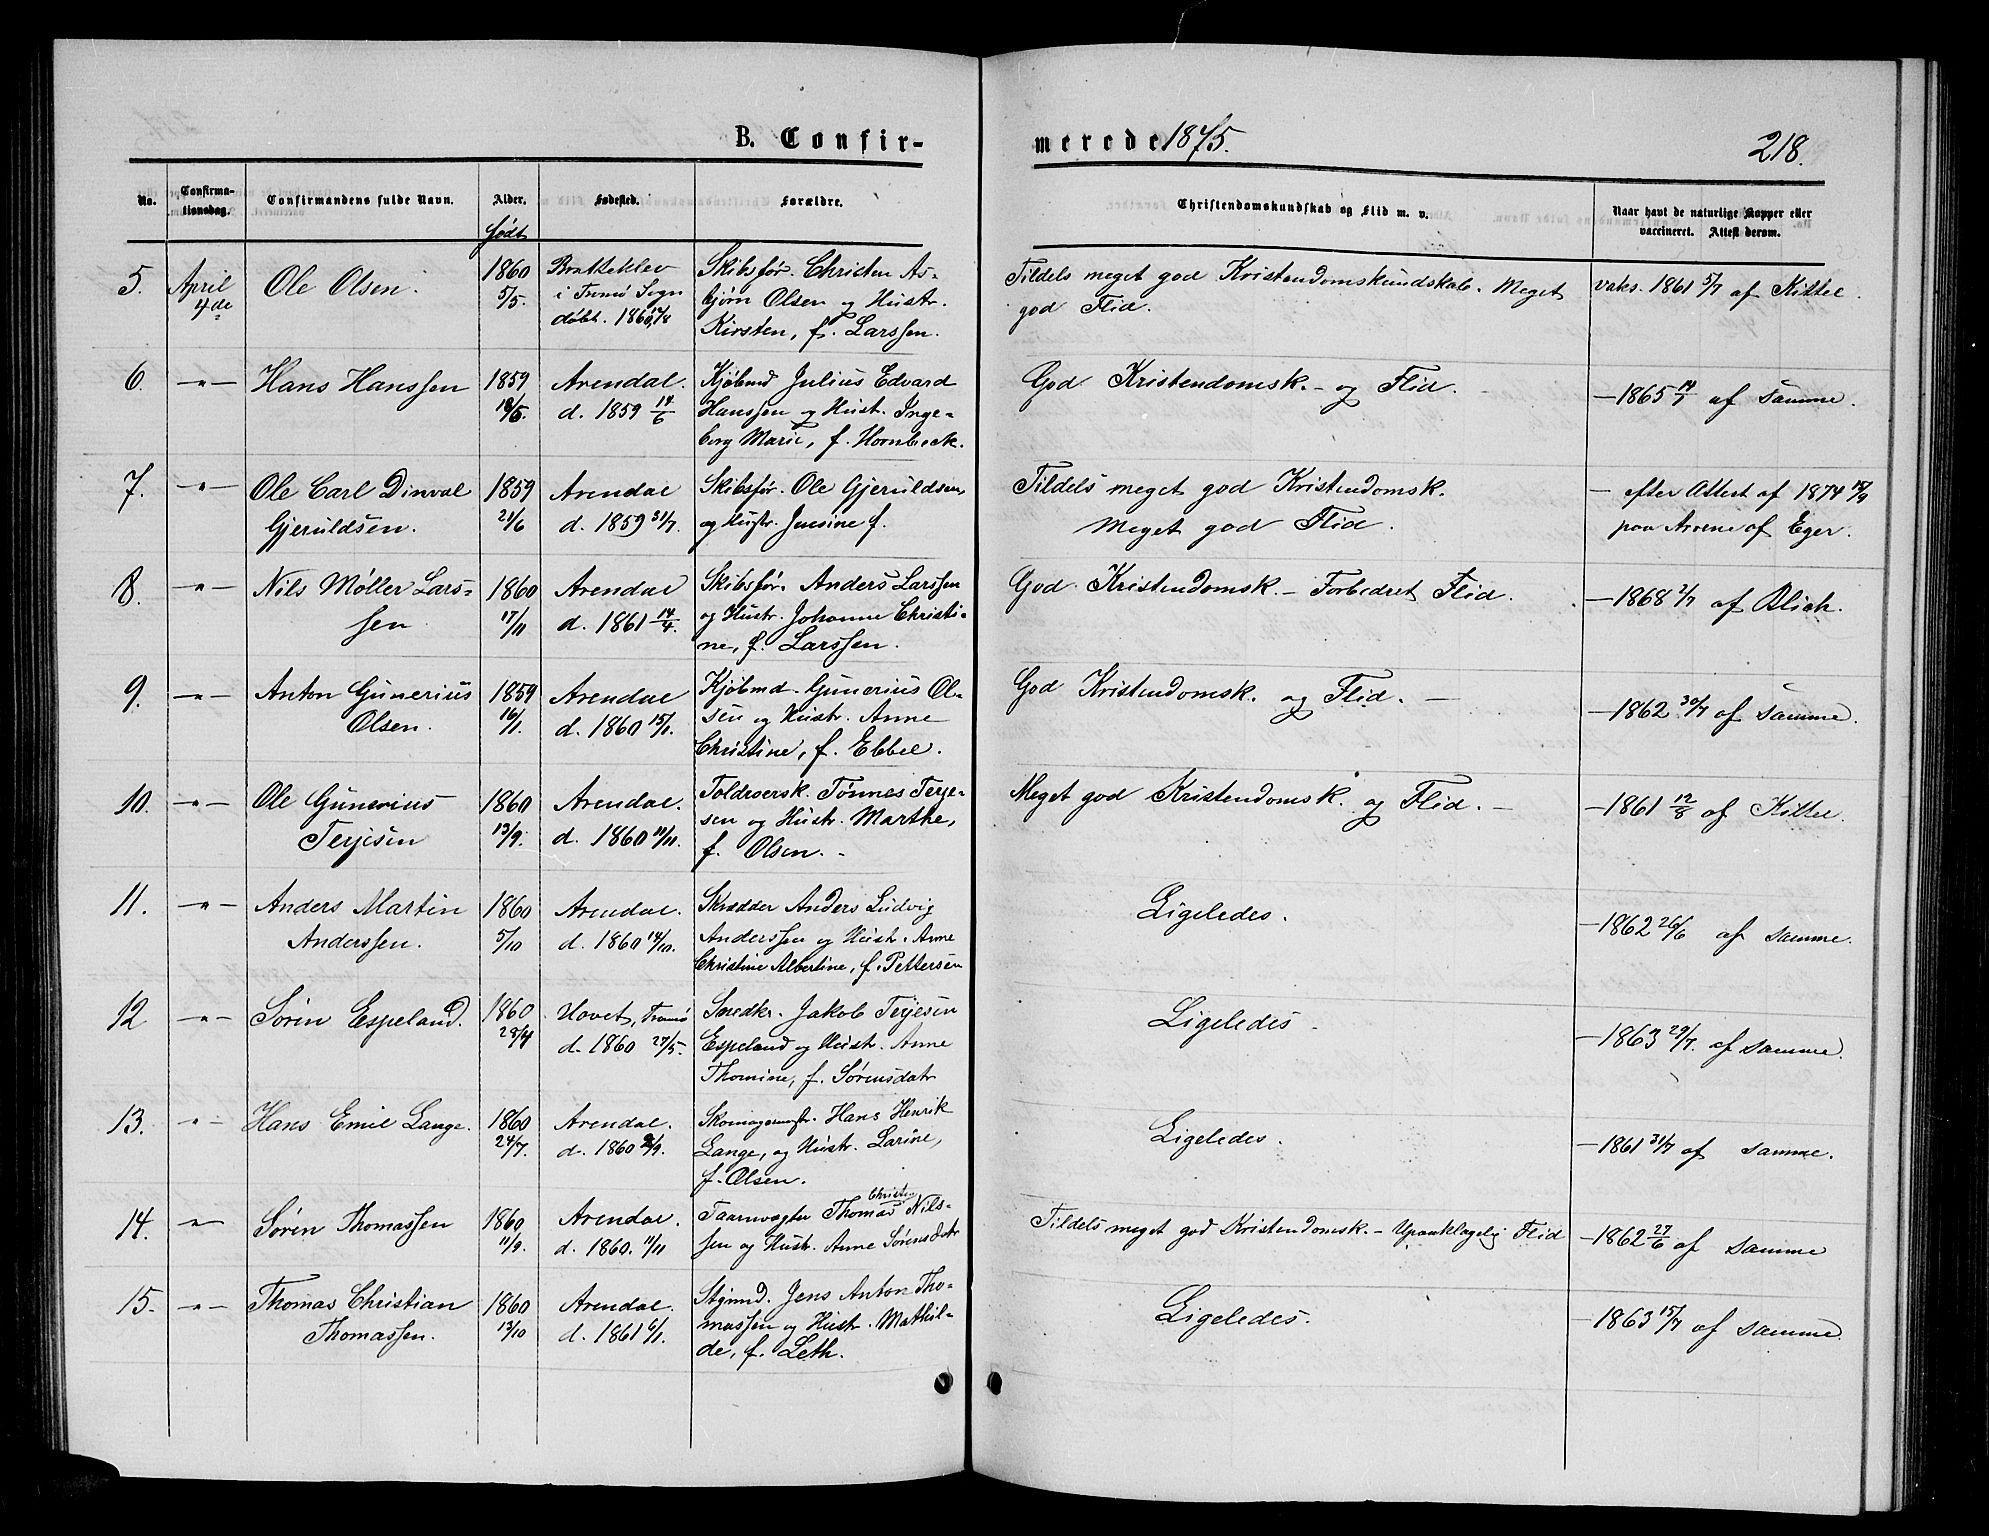 B. Confir-
merede 1875.
218.
No.
Confirma-
tionsdag.
Confirmandens fulde Navn.
Alder.
født
Fødested.
Forældre.
Christendomskundskab og Flid m. v.
Naar havt de naturlige Kopper eller
vaccineret. Attest derom.
5. April
4de
Ole Olsen.
1860
5/5.
Bratteklev
i Tromø Sogn
døbt. 1860
Skibsfør. Christen As-
bjørn Olsen og Hustr.
Kirsten, f. Larssen.
Tildels meget god Kristendomskundskab. Meget
god Flid.
vaks. 1861 5/7 af Kittel.
6. -"- Hans Hanssen
1859
18/5.
Arendal.
d. 1859 14/6
Kjøbmd Julius Edvard
Hanssen og Hust. Inge-
borg Marie, f. Hornbeck.
God Kristendomsk. - og Flid.
- 1865 14/7 af samme.
7. -"- Ole Carl Dinval
Gjeruldsen.
1859
21/6
Arendal
d. 1859 31/7.
Skibsfør. Ole Gjeruldsen,
og Hustr. Jensine f.
Tildels meget god Kristendomsk.
Meget god Flid.
- efter Attest af 1874 18/9
paa Arrene af Eger.
8. -"- Nils Møller Lars-
sen
1860
17/11
Arendal
d. 1861 14/4.
Skibsfør. Anders Larssen
og Hustr. Johanne Christi-
ne, f. Larssen.
God Kristendomsk. - Forbedret Flid.
- 1868 2/7 af Blich.
9. -"- Anton Gunerius
Olsen.
1859
16/1.
Arendal
d. 1860 15/1.
Kjøbmd. Gunerius Ol-
sen og Hustr. Anne
Christine, f. Ebbel.
God Kristendomsk. og Flid. -
- 1862 30/7 af samme.
10. -"- Ole Gunerius
Terjesen
1860
13/9.
Arendal.
d. 1860 11/11.
Toldroersk. Tønnes Terje-
sen og Hustr. Marthe,
f. Olsen. -
Meget god Kristendomsk. og Flid. -
- 1861 12/8 af Kittel.
11. -"- Anders Martin
Anderssen.
1860
5/10
Arendal.
d. 1860 14/10.
Skrædder Anders Ludvig
Anderssen og Hustr. Anne
Christine Albertine, f. Pettersen
Ligeledes.
- 1862 26/6 af samme.
12 -"- Søren Espeland.
1860
28/4
Hovet, Tromø
d. 1860 27/5.
Snedkr. Jakob Terjesen
Espeland og Hustr. Anne
Thomine, f. Sørensdatr
Ligeledes
- 1863 29/7. af samme.
13. -"- Hans Emil Lange.
1860
24/7.
Arendal.
d. 1860 2/9.
Skomagermstr. Hans Henrik
Lange, og Hustr. Larine,
f. Olsen.
Ligeledes.
- 1861 31/7 af samme.
14. -"- Søren Thomassen
1860
11/9.
Arendal.
d. 1860. 11/11
Christen
Taarnvægter Thomas Nils-
sen og Hustr. Anne Sørensdatr
Tildels meget god Kristendomsk. - Upaaklagelig Flid
- 1862 27/6 af samme
15. -"- Thomas Christian
Thomassen.
1860
13/10
Arendal.
d. 1861 6/1.
Stymd. Jens Anton Tho-
massen og Hustr. Mathil-
de, f. Leth.
Ligeledes.
- 1863 15/7 af samme.